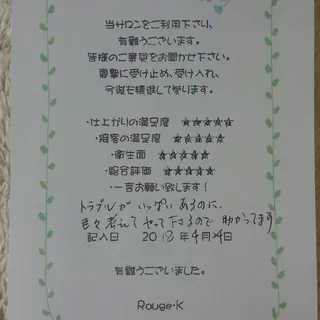 当サロンをご利用下さい、
有難うございます。
皆様のご意見をお聞かせ下さい。
真摯に受け止め、受け入れ、
今後も精進して参ります。
・仕上がりの満足度 ★★★★★
・接客の満足度 ★★★★★
・衛生面 ★★★★★
・総合評価 ★★★★★
・一言お願い致します！
トラブルがいっぱいあるのに、
色々考えてやって下さるので助かってます
記入日 2018年4月24日
有難うございました。
Rouge・K